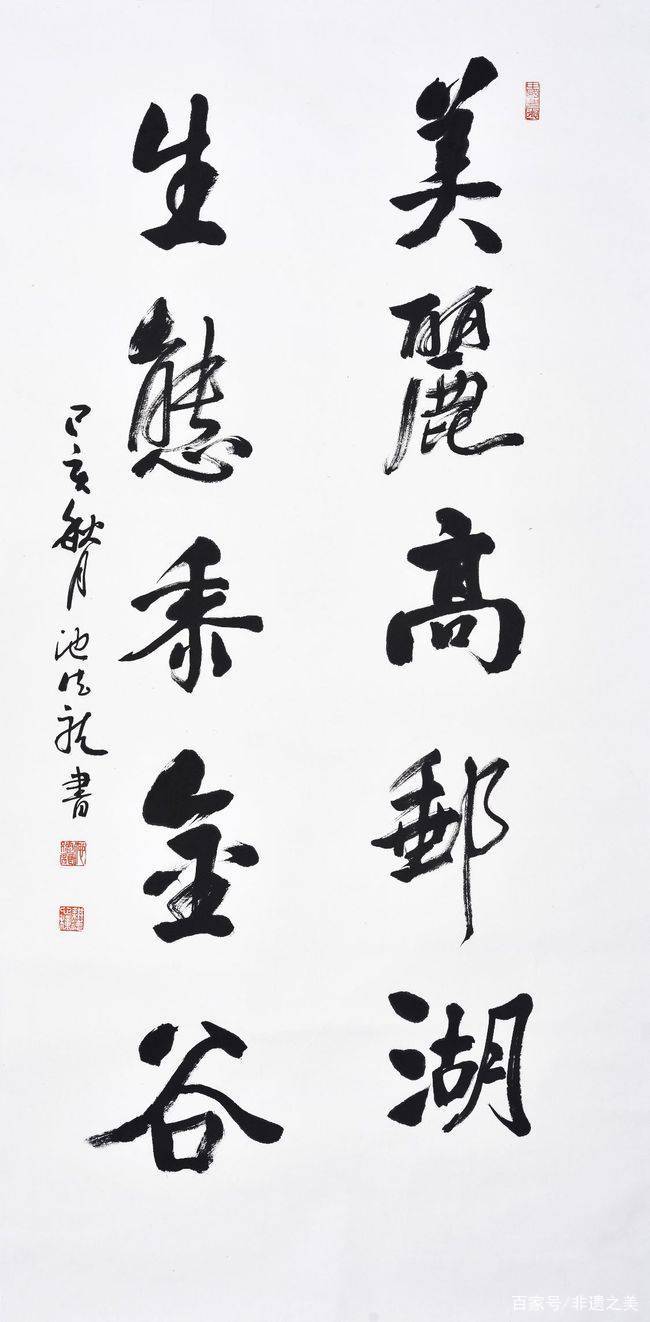 美麗高郵湖
生態黍金谷
己亥秋月池德龍書
百家号/非遗之美